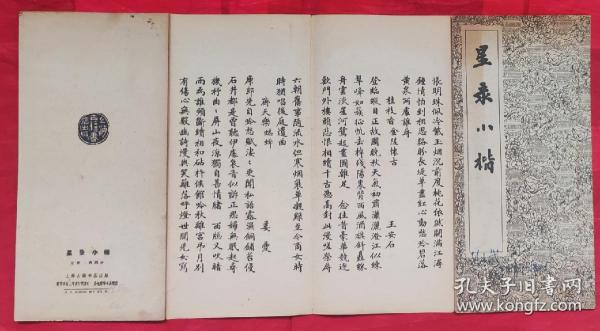 星彔小楷
悵明珠佩冷紫玉烟沉前度桃花依然開滿江潯
鍾情怕到相思路盼長堤草盡紅心動愁吟碧落
黄泉兩處誰尋
桂枝香金陵懷古 王安石
登臨縱目正故國晚秋天氣初肅瀟灑澄江似練
翠峰如簇征帆去棹殘陽裏背西風酒旗斜矗綵
舟雲淡星河鷺起畫圖難足 念往昔豪華競逐
歎門外樓頭悲恨相續千古憑高對此漫嗟榮辱
六朝舊事隨流水但寒烟衰草凝綠至今商女時
時猶唱後庭遺曲
齊天樂蟋蟀 姜夔
庾郎先自吟愁賦淒〻更聞私語露濕銅鋪苔侵
石井都是曾聽伊處哀音似訴正思婦無眠起尋
機杼曲〻屏山夜涼獨自甚情緒 西窗又吹暗
雨為誰頻斷續相和砧杵候館吟秋離宮弔月別
有傷心無數豳詩漫與笑籬落呼燈世間兒女寫
星彔小楷
上海古籍書店出版
孔夫子旧书网